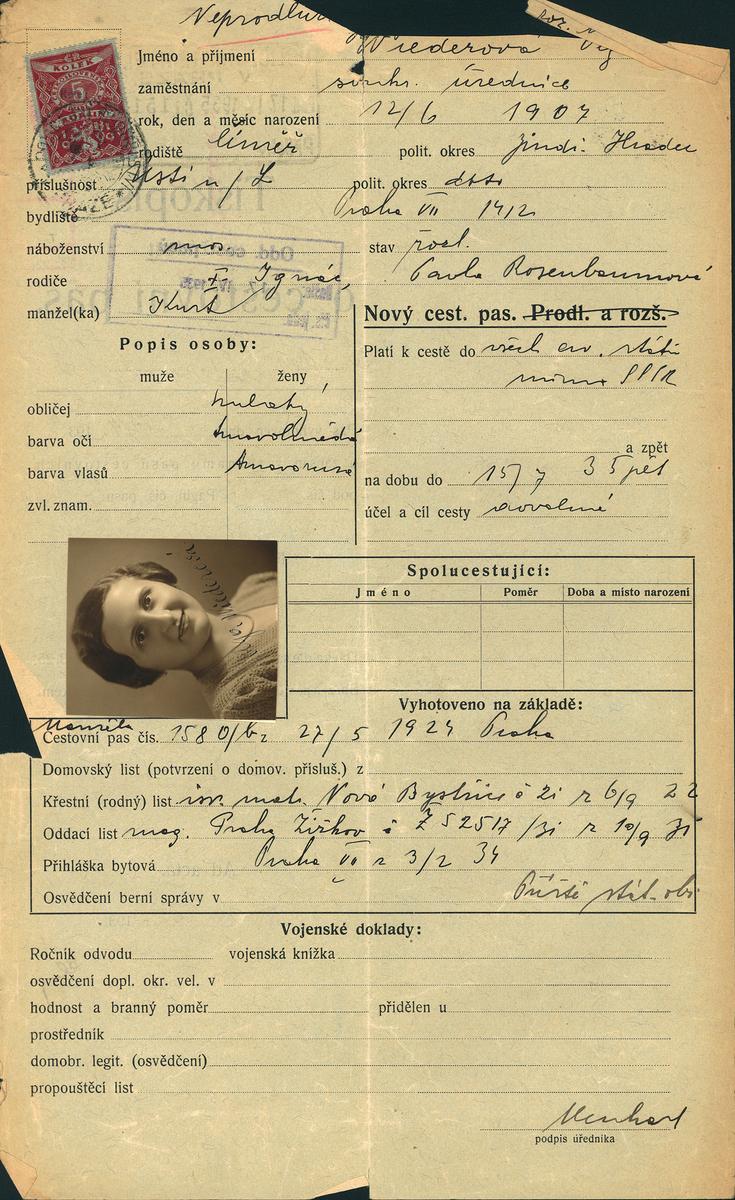 Neprodluž
Jméno a příjmení Wiederová
zaměstnání soukr. úřednice
rok, den a měsíc narození 12/6 1907
rodiště polit. okres Jindř. Hradec
příslušnost Ústí n/L polit. okres dtto
bydliště Praha VII 1412
náboženství mos. stav rozl.
rodiče Ignác, Pavla Rosenbaumová
manžel(ka) Kurt
Nový cest. pas. Prodl. a rozš.
Popis osoby:
Platí k cestě do všech ev. států
mimo SSSR
muže ženy
obličej kulatý
barva očí tmavohnědá
barva vlasů tmavorusá
zvl. znam.
a zpět
na dobu do 15/7 35 pět
účel a cíl cesty dovolené
Spolucestující:
Jméno Poměr Doba a místo narození
Vyhotoveno na základě:
Manžela
Cestovní pas čís. 27/5 Praha
Domovský list (potvrzení o domov. přísluš.) z
Křestní (rodný) list isr. mat. Nová Bystřice č 21 z 6/9 22
Oddací list mag. Praha Žižkov č Ž 52517/31 z 10/9 31
Přihláška bytová Praha VII z 3/2 34
Osvědčení berní správy v
Příště stát. obč.
Vojenské doklady:
Ročník odvodu vojenská knížka
osvědčení dopl. okr. vel. v
hodnost a branný poměr přidělen u
prostředník
domobr. legit. (osvědčení)
propouštěcí list
podpis úředníka